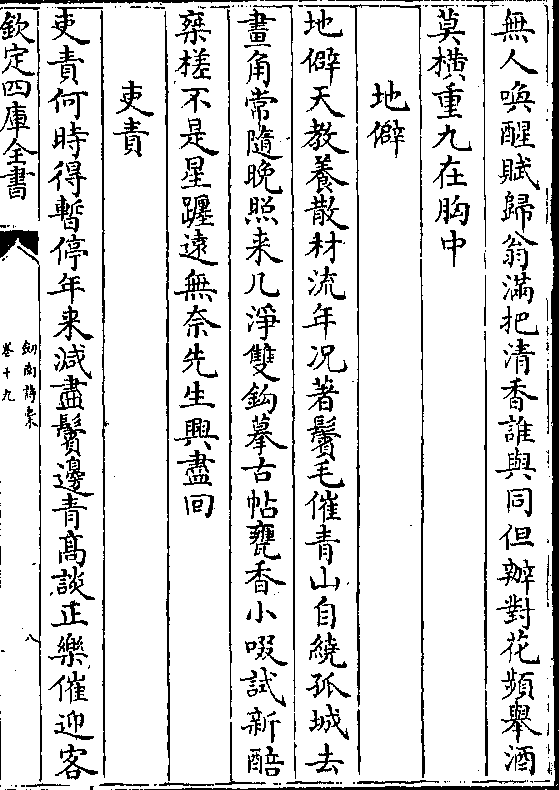 無人喚醒賦歸翁滿把清香誰與同但辦對花頻舉酒
莫横重九在胸中
地僻
地僻天教養散材流年况著鬢毛催青山自繞孤城去
畫角常隨晚照来几淨雙鈎摹古帖甕香小啜試新醅
椉槎不是星躔遠無奈先生興盡回
吏責
吏責何時得暫停年来減盡鬢邊青髙談正樂催迎客
欽定四庫全書
劒南詩稾
卷十九
八